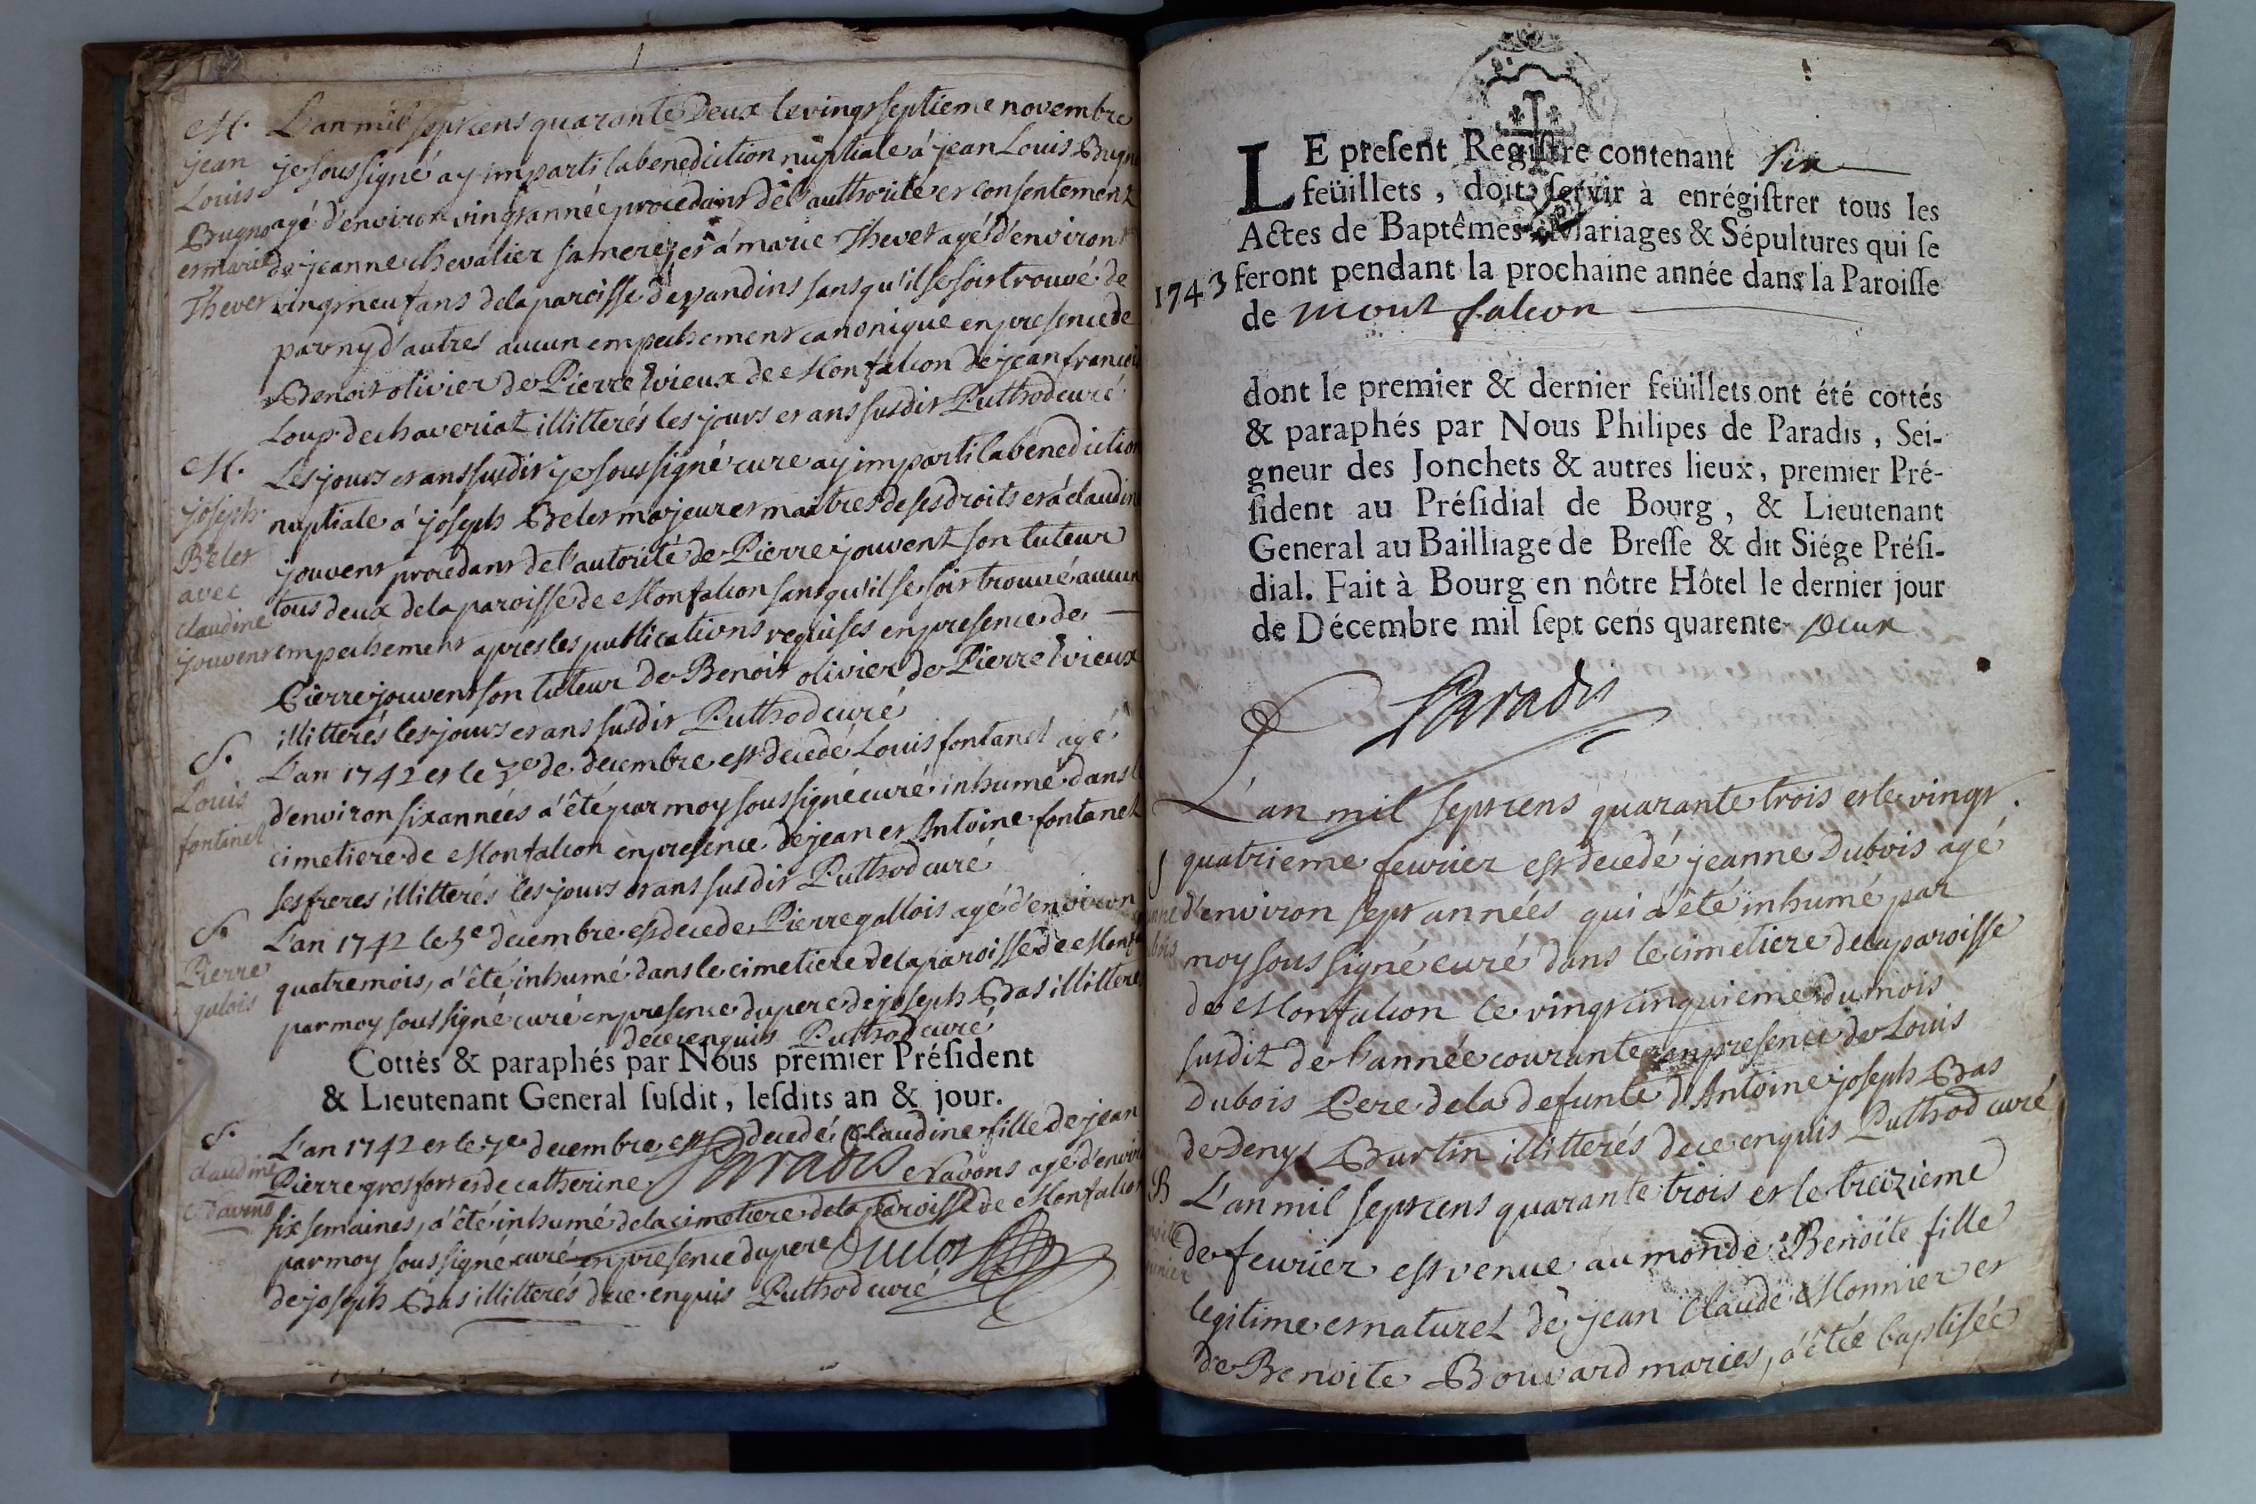 M.
jean
Louis
Bugno
et marie
Thevet
L'an mil sept cens quarante Deux le vingt septieme novembre
je soussigné ay imparti la benediction nuptiale á jean Louis Bugn
agé d'environ vingt année procedant de l'authorité et consentement
de jeanne chevalier sa mere, et á marie Thevet agé d'environ
vingt neuf ans de la paroisse de vandins sans qu'il se soit trouvé de
par ny d'autres aucun empechement canonique en presence de
Benoit olivier de Pierre vieux de Monfalcon de jean francois
Loup de chaveriat illitterés les jours et ans susdit Puthod curé
M.
joseph
Belet
avec
claudine
jouvent
Les jours et ans susdit je soussigné curé ay imparti la benediction
nuptiale á joseph Belet majeur et maitre de ses droits et á claudine
jouvent procedant de l'autorité de Pierre jouvent son tuteur
tous deux de la paroisse de Monfalcon sans qu'il se soit trouvé aucun
empechement apres les publications requises en presence de
Pierre jouvent son tuteur de Benoit olivier de Pierre vieux
illitterés les jours et ans susdit Puthod curé
S.
Louis
fontinel
L'an 1742 et le 3e de decembre est decedé Louis fontanel agé
d'environ six années á été par moy soussigné curé inhumé dans le
cimetiere de Monfalcon en presence de jean et Antoine fontanel
ses freres illitterés les jours et ans susdit Puthod curé
S.
Pierre
galois
L'an 1742 le 5e decembre est decede Pierre gallois agé d'environ
quatre mois, á été inhumé dans le cimetiere de la paroisse de Monfa
par moy soussigné curé en presence du pere de joseph Bas illittere
de ce enquis Puthod curé
Cottés & paraphés par Nous premier Préſident
& Lieutenant General ſuſdit, leſdits an & jour.
S.
claudine
L'an 1742 et le 7e decembre est decedé Claudine fille de jean
Pierre grosfort et de catherine Paradis agé d'envir
six semaines, á été inhumé de la cimetiere de la Paroisse de Monfalcon
par moy soussigné curé en presence du pere Duclos
de joseph Bas illitterés de ce enquis Puthod curé
LE preſent Regiſtre contenant six
feüillets, doit ſervir à enrégiſtrer tous les
Actes de Baptêmes, Mariages & Sépultures qui ſe
1743 feront pendant la prochaine année dans la Paroiſſe
de mont falcon
dont le premier & dernier feüillets ont été cottés
& paraphés par Nous Philipes de Paradis, Sei-
gneur des Jonchets & autres lieux, premier Pré-
ſident au Préſidial de Bourg, & Lieutenant
General au Bailliage de Breſſe & dit Siége Préſi-
dial. Fait à Bourg en nôtre Hôtel le dernier jour
de Décembre mil ſept cens quarente deux
Paradis
L'an mil sept cens quarante trois et le vingt
S quatrieme fevrier est decedé jeanne Dubois agé
d'environ sept années qui á été inhumé par
moy soussigné curé dans le cimetiere de la paroisse
de Monfalcon le vingt cinquieme du mois
susdit de l'année courante en presence de Louis
Dubois Pere de la defunte d'Antoine joseph Bas
de Denys Burtin illitterés de ce enquis Puthod curé
B L'an mil sept cens quarante trois et le treizieme
de fevrier est venue au monde Benoite fille
legitime et naturel de jean Claude Monnier et
de Benoite Bouvard mariés, á étée baptisée